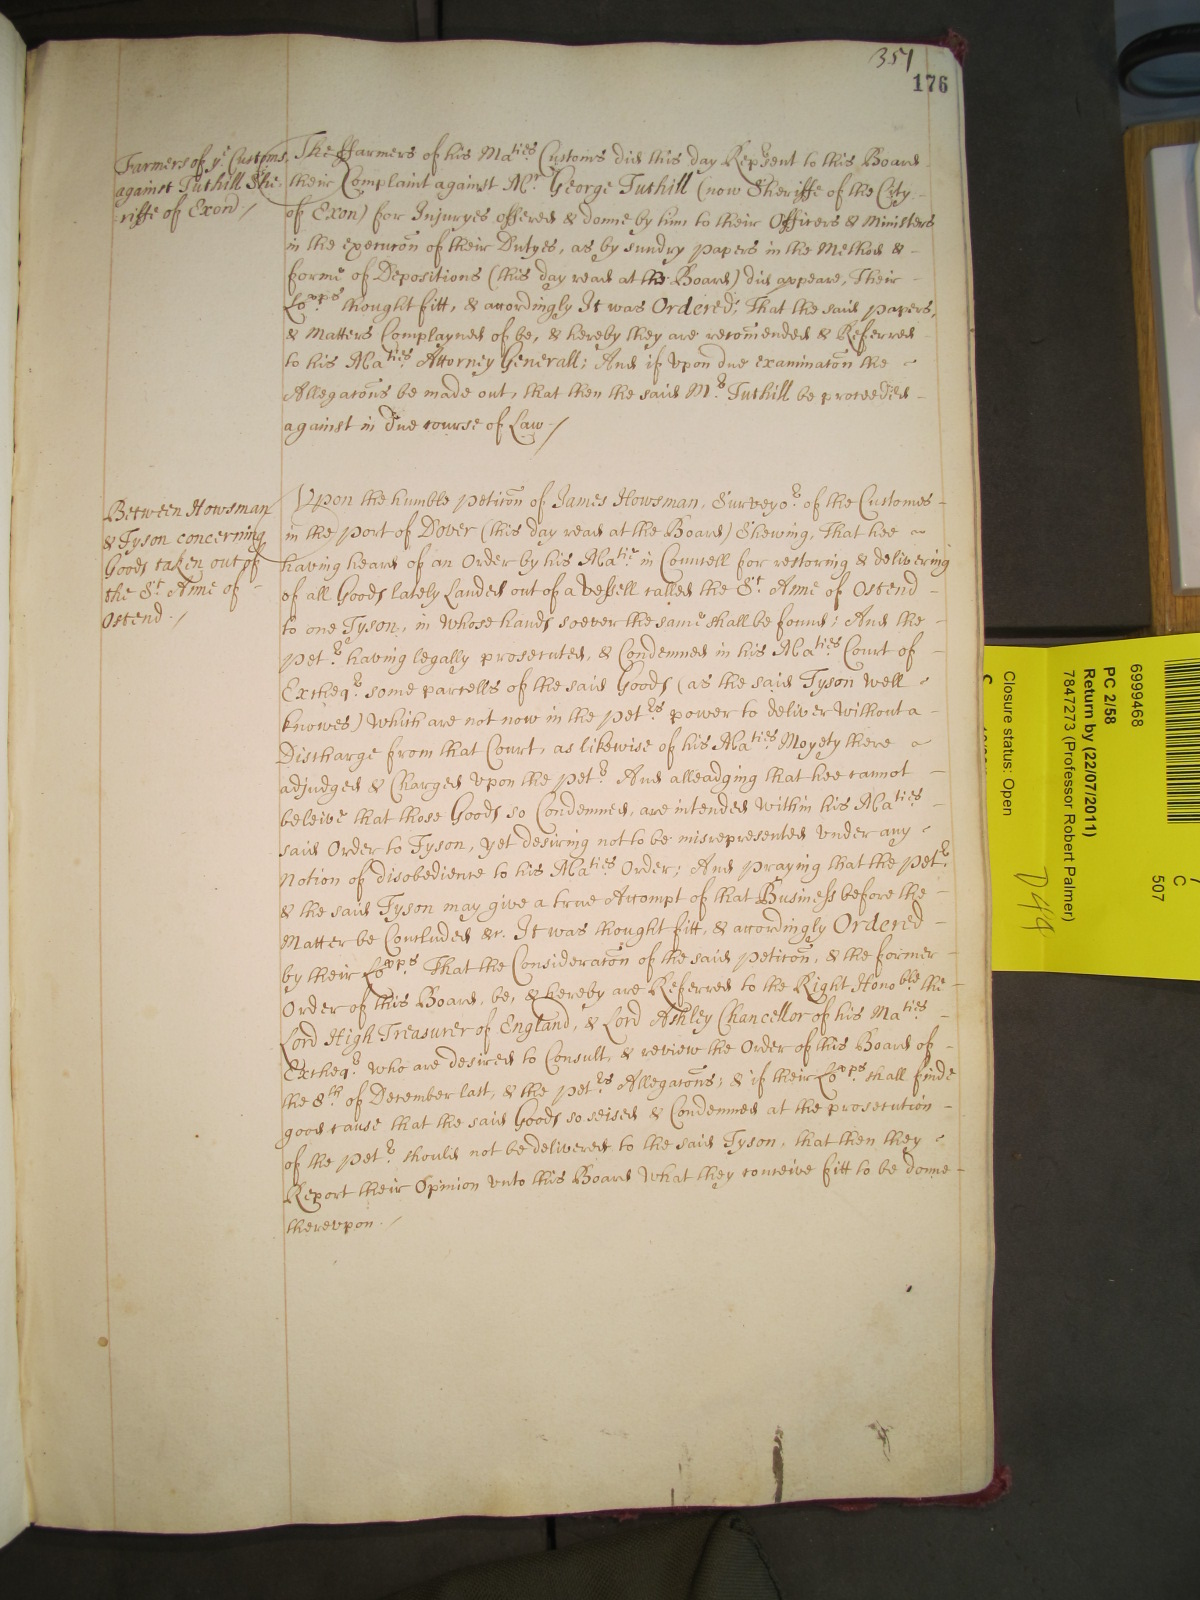 351
176
Farmers of ye Customs
against Tuthill She-
riffe of Exon /
The ffarmers of his Maties Customs did this day Represent to this Board
their Complaint against Mr George Tuthill (now Sheriffe of the City
of Exon) for Injuryes offered & donne by him to their Officers & Ministers
in the execucon of their Dutyes, as by sundry papers in the Method &
forme of Depositions (this day read at the Board) did appeare, Their
Lopps thought fitt, & accordingly It was Ordered, That the said papers,
& Matters Complayned of be, & hereby they are recomended & Referred
to his Maties Attorney Generall; And if upon due examinaton the
Allegatons be made out, that then the said Mr Tuthill be proceeded
against in due course of Law. /
Between Howsman
& Tyson concerning
Goods taken out of
the St Anne of
Ostend. /
Vpon the humble peticon of James Howsman, Surveyor of the Customes
in the port of Dover (this day read at the Board) Shewing, That hee
having heard of an Order by his Matie in Councell for restoring & delivering
of all Goods lately Landed out of a Vessell called the St Anne of Ostend
to one Tyson, in whose hands soever the same shall be found; And the
petr having legally prosecuted, & Condemned in his Maties Court of
Excheqr some parcells of the said Goods (as the said Tyson well
knowes) which are not now in the petrs power to deliver without a
Discharge from that Court, as likewise of his Maties Moyety there
adjudged & Charged vpon the petr And alleadging that hee cannot
beleive that those Goods so Condemned, are intended within his Maties
said Order to Tyson, yet desiring not to be misrepresented under any
Notion of disobedience to his Maties Order; And praying that the petr
& the said Tyson may give a true Accompt of that Business before the
Matter be Concluded &c. It was thought fitt, & accordingly Ordered
by their Lopps. That the Consideraton of the said peticon, & the former
Order of this Board, be, & hereby are Referred to the Right Honoble the
Lord High Treasurer of England, & Lord Ashley Chancellor of his Maties
Excheqr who are desired to Consult, & review the Order of this Board of
the 8th of December last, & the petrs Allegatons; & if their Lopps shall finde
good cause that the said Goods so seised & Condemned at the prosecution
of the petr should not be delivered to the said Tyson, that then they
Report their Opinion vnto this Board what they conceive fitt to be donne
therevpon. /
6999468
PC 2/58
Return by (22/07/2011)
7847273 (Professor Robert Palmer)
Closure status: Open
C
507